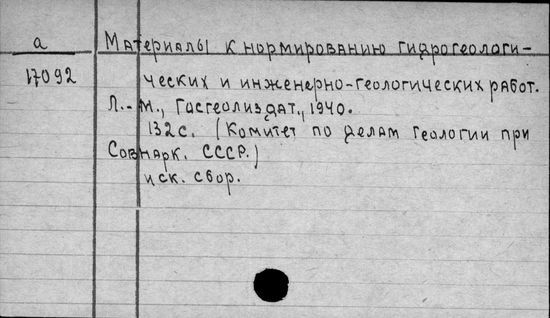 а
17092
Материалы к нормированию гидрогеологи-
ческих и инженерно-геологических работ.
Л.-М., Госгеолиздат, 1940.
132с. (Комитет по делам геологии при
Совнарк. СССР.)
иск. сбор.